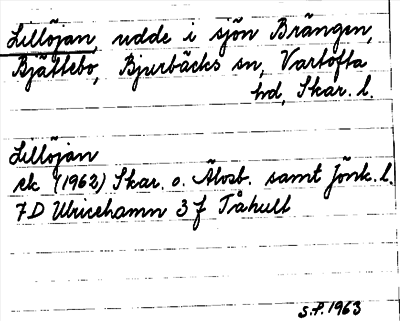 Lillöjan, udde i sjön Brängen,
Bjättebo, Bjurbäcks sn, Vartofta
hd, Skar. l.
Lillöjan
ek (1962) Skar. o. Älvsb. samt Jönk. l.
7D Ulricehamn 3 f Tåhult
S.P. 1963